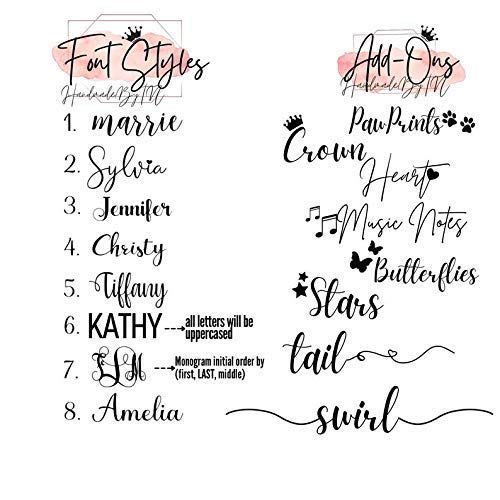 Font Styles
HandmadeByTN
1. marrie
2. Sylvia
3. Jennifer
4. Christy
5. Tiffany
6. KATHY
all letters will be
uppercased
7.
Monogram initial order by
(first, LAST, middle)
8. Amelia
Add-Ons
HandmadeByTN
PawPrints
Crown
Heart
Music Notes
Butterflies
Stars
tail
swirl